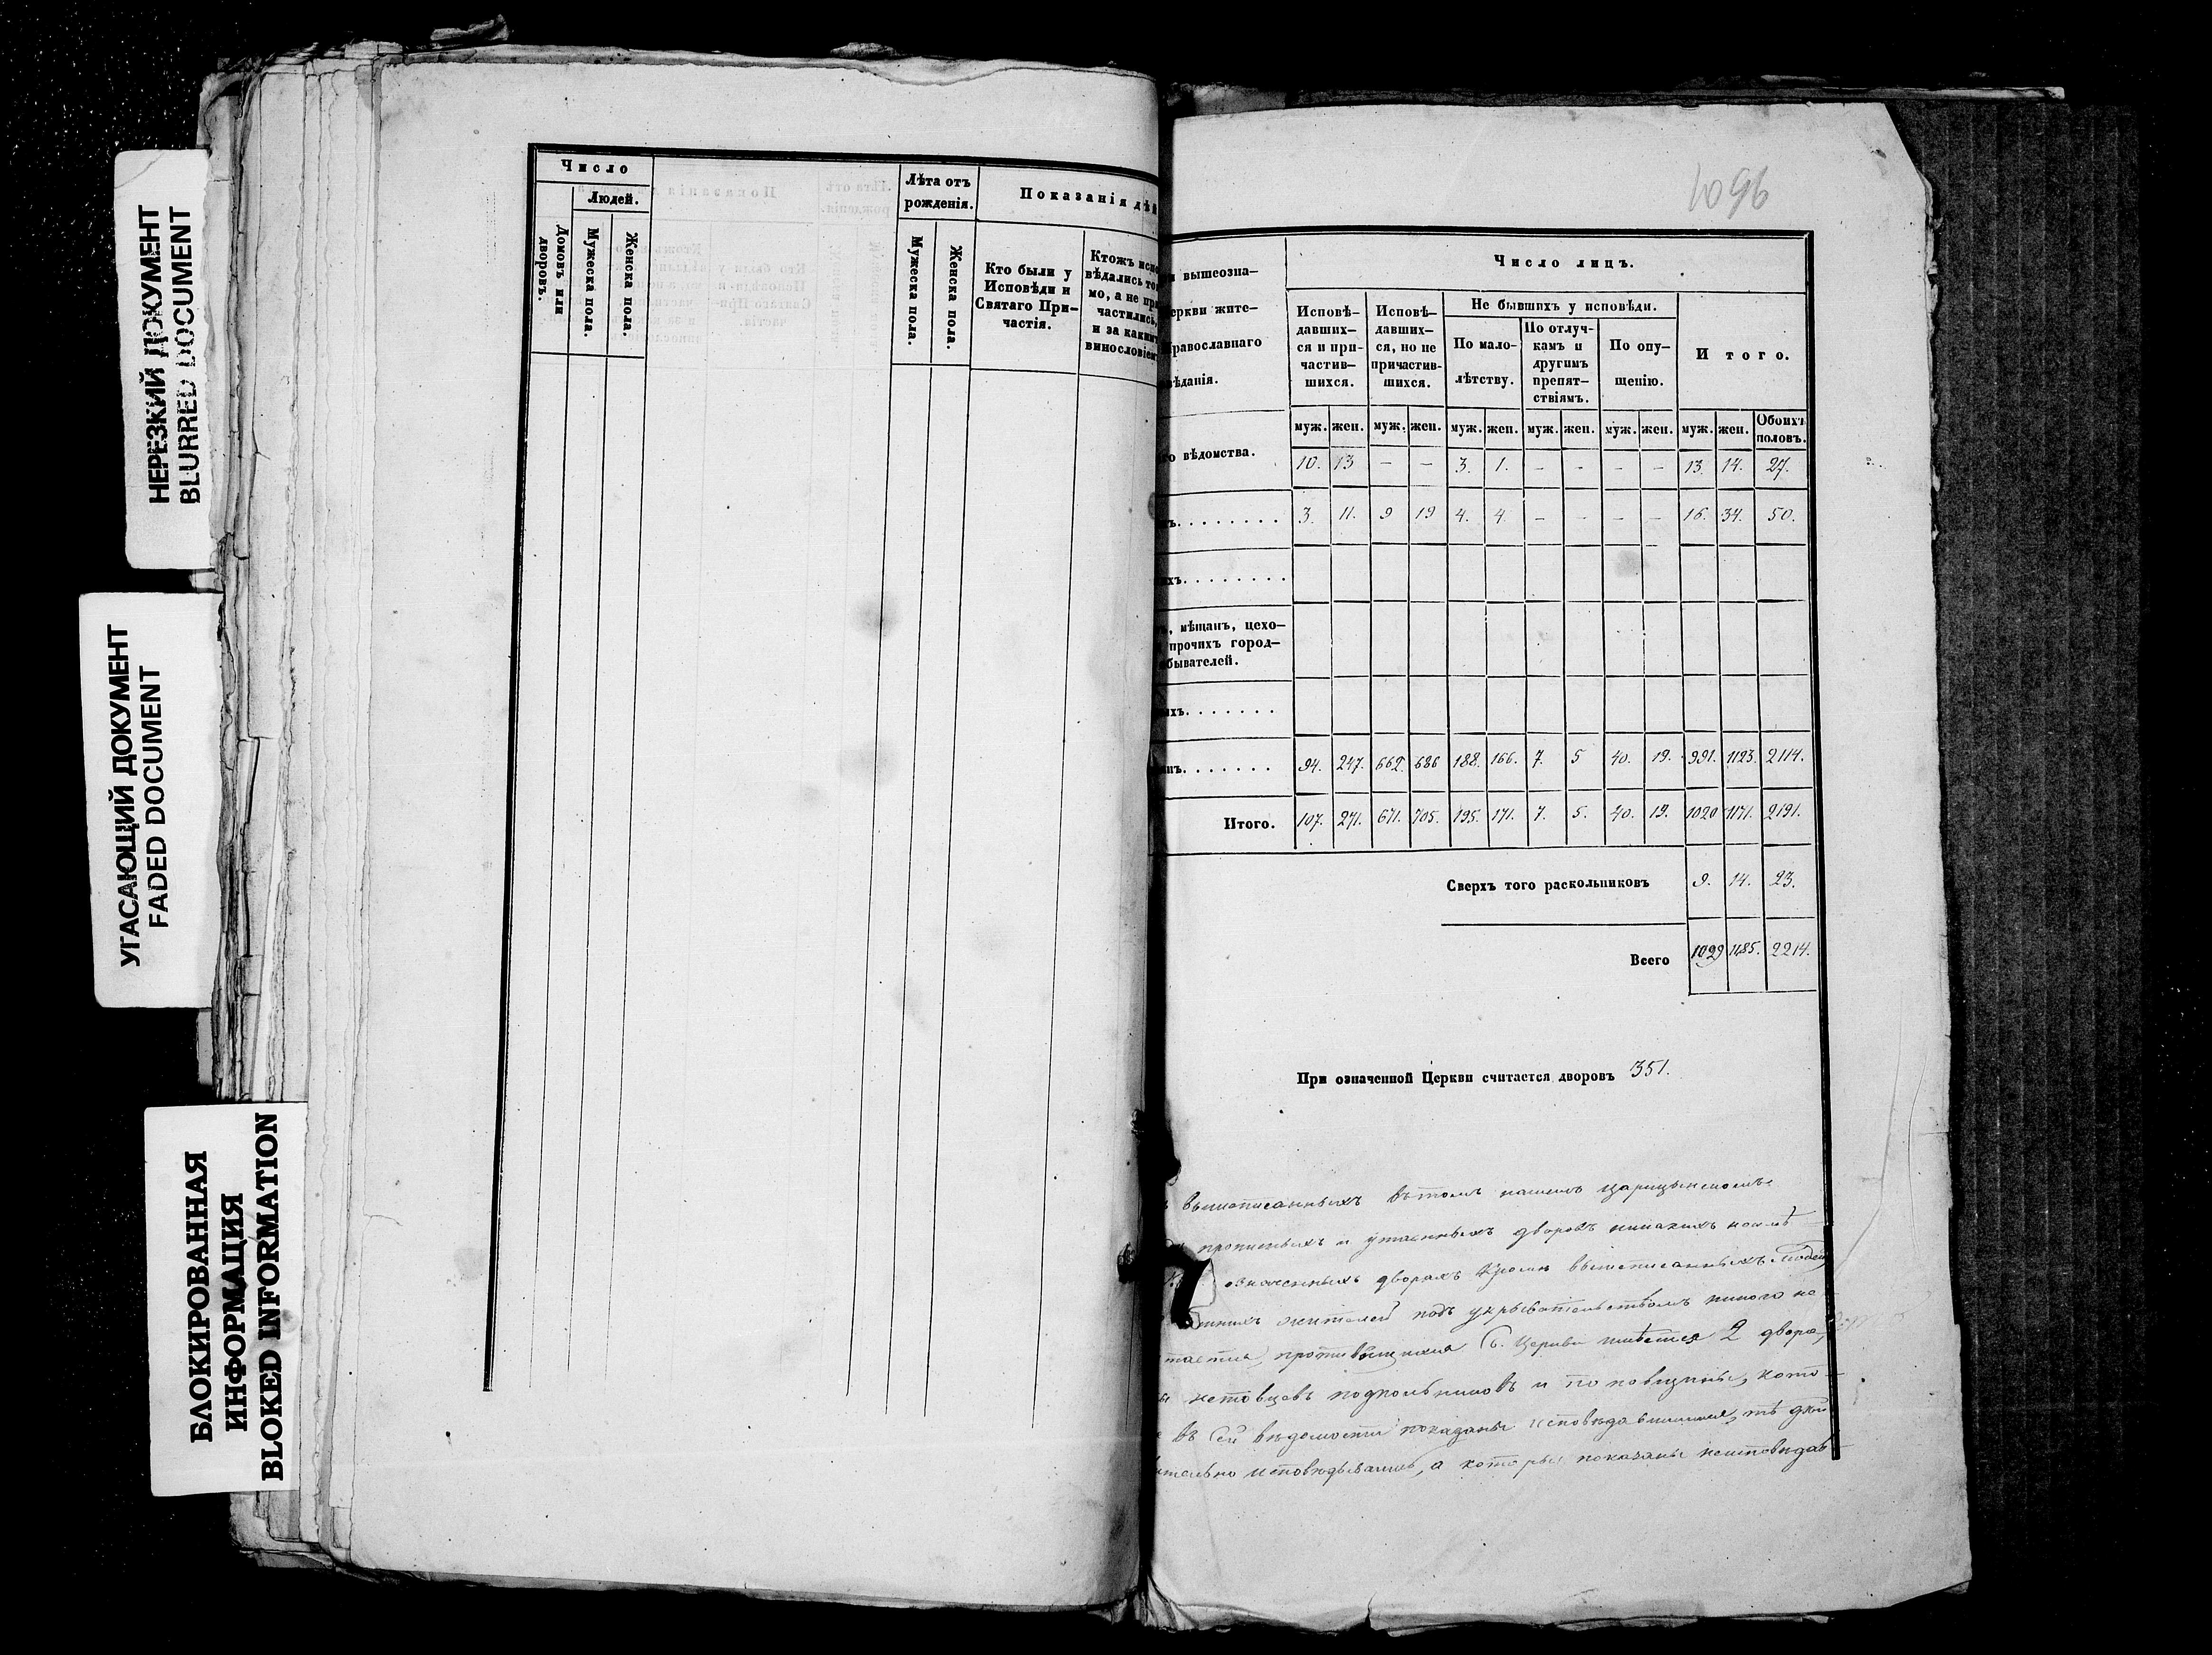 НЕРЕЗКИЙ ДОКУМЕНТ
BLURRED DOCUMENT
УГАСАЮЩИЙ ДОКУМЕНТ
FADED DOCUMENT
БЛОКИРОВАННАЯ
ИНФОРМАЦИЯ
BLOKED INFORMATION
Число
Людей.
Домовъ или
дворовъ.
Мужеска пола.
Женска пола.
Лѣта отъ
рожденія.
Мужеска пола.
Женска пола.
Показанія дѣй
Кто были у
Исповѣди и
Святаго При-
частія.
Ктожъ испо
вѣдались то
мо, а не при
частились,
и за каким
винословіем
1096
вышеозна-
еркви жите-
равославнаго
вѣданія.
Число лицъ.
Исповѣ-
давших-
ся и при-
частив-
шихся.
Исповѣ-
давших-
ся, но не
причастив-
шихся.
Не бывшихъ у исповѣди.
По мало-
лѣтству.
По отлуч-
камъ и
другимъ
препят-
ствіямъ.
По опу-
щенію.
Итого.
муж. жен. муж. жен. муж. жен. муж. жен. муж. жен. муж. жен. Обоихъ половъ.
го вѣдомства. 10. 13 – – 3. 1. – – – – 13. 14. 27.
ъ. . . . . . . . 3. 11. 9 19 4. 4 – – – – 16. 34. 50.
ихъ. . . . . . . .
, мѣщанъ, цехо-
прочихъ город-
бывателей.
ыхъ. . . . . . .
нъ. . . . . . . 94. 247. 662. 686 188. 166. 7. 5 40. 19. 991. 1123. 2114.
Итого. 107. 271. 671. 705. 195. 171. 7. 5. 40. 19. 1020 1171. 2191.
Сверхъ того раскольниковъ 9. 14. 23.
Всего 1029 1185. 2214.
При означенной Церкви считается дворовъ 351.
вышеписанныхъ въ томъ нашемъ
и утаенныхъ дворовъ никакихъ
означенныхъ дворахъ кромѣ вышеписанныхъ людей
жителей подъ укрывательствомъ никого не
Церкви имѣется 2 двора,
нетовцевъ и поповщины, кото-
въ сей вѣдомости показаны исповѣдавшимися, тѣ дѣй
ительно исповѣдывались, а которые показаны неисповѣдав-